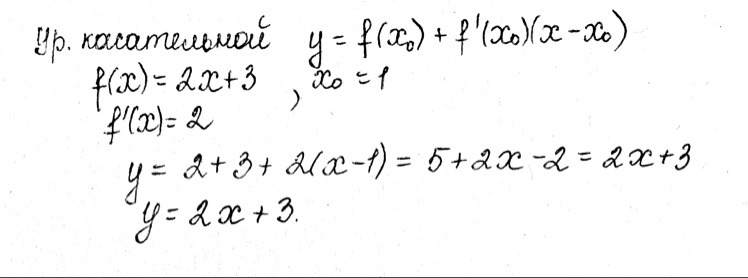 Ур. касательной y = f(x₀) + f'(x₀)(x - x₀)
f(x) = 2x+3 , x₀ = 1
f'(x) = 2
y = 2+3+2(x-1) = 5+2x-2 = 2x+3
y = 2x+3.